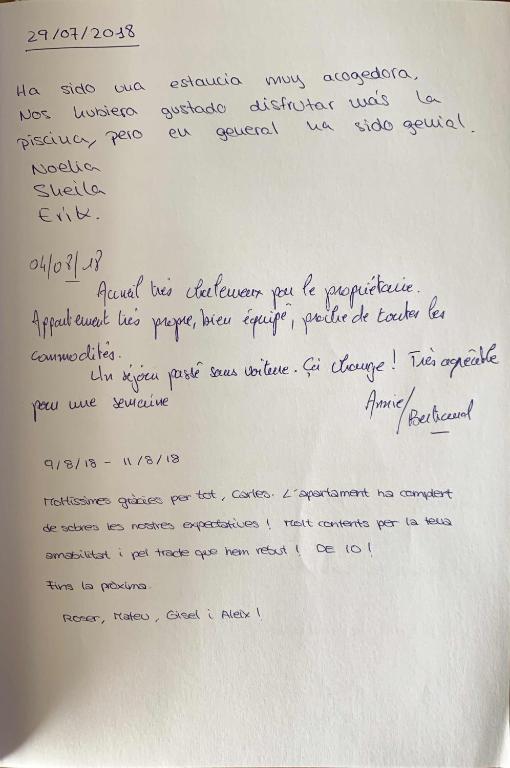 29/07/2018
Ha sido una estancia muy acogedora,
Nos hubiera gustado disfrutar más la
piscina, pero en general ha sido genial.
Noelia
Sheila
Erik.
04/08/18
Accueil très chaleureux par le propriétaire.
Appartement très propre, bien équipé, proche de toutes les
commodités.
Un séjour passé sans voiture. Ça change ! Très agréable
pour une semaine
Annie/Bertrand
9/8/18 - 11/8/18
Moltíssimes gràcies per tot, Carles. L'apartament ha complert
de sobres les nostres expectatives ! Molt contents per la teva
amabilitat i pel tracte que hem rebut ! DE 10 !
Fins la pròxima.
Roser, Mateu, Gisel i Aleix !